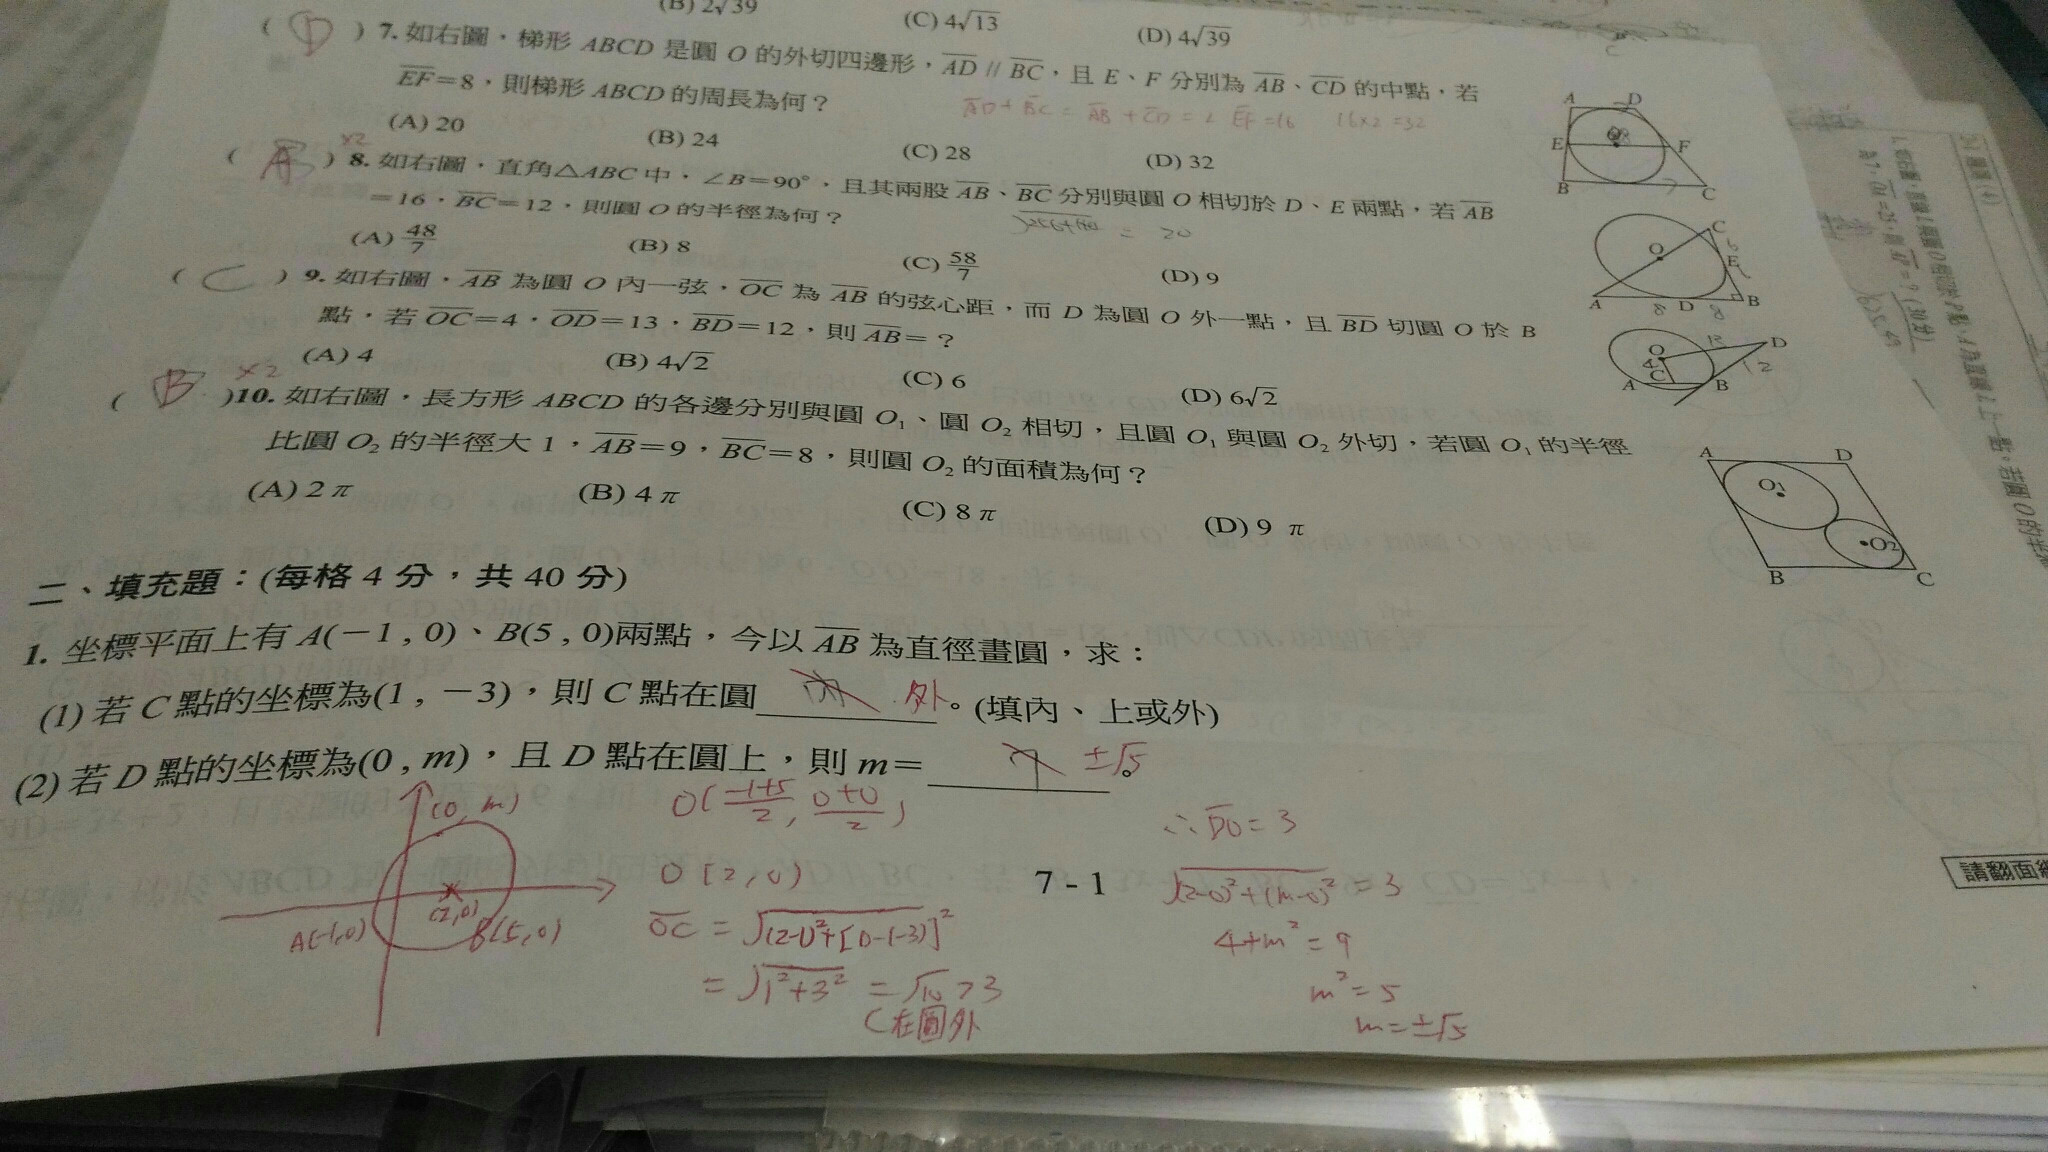 (B) 2√39
(C) 4√13
(D) 4√39
( D ) 7. 如右圖，梯形 ABCD 是圓 O 的外切四邊形，AD // BC，且 E、F 分別為 AB、CD 的中點，若
EF＝8，則梯形 ABCD 的周長為何？
AD + BC = AB + CD = 2 EF = 16 16×2 = 32
(A) 20 (B) 24 (C) 28 (D) 32
×2
( A ) 8. 如右圖，直角△ABC 中，∠B＝90°，且其兩股 AB、BC 分別與圓 O 相切於 D、E 兩點，若 AB
＝16，BC＝12，則圓 O 的半徑為何？
= 20
(A) 48/7 (B) 8 (C) 58/7 (D) 9
( C ) 9. 如右圖，AB 為圓 O 內一弦，OC 為 AB 的弦心距，而 D 為圓 O 外一點，且 BD 切圓 O 於 B
點，若 OC＝4，OD＝13，BD＝12，則 AB＝？
(A) 4 (B) 4√2 (C) 6 (D) 6√2
×2
( B )10. 如右圖，長方形 ABCD 的各邊分別與圓 O₁、圓 O₂ 相切，且圓 O₁ 與圓 O₂ 外切，若圓 O₁ 的半徑
比圓 O₂ 的半徑大 1，AB＝9，BC＝8，則圓 O₂ 的面積為何？
(A) 2 π (B) 4 π (C) 8 π (D) 9 π
A D
E O F
B C
C
O 6
E
A 8 D 8 B
O 13 D
4 12
A C B
A D
O₁
O₂
B C
二、填充題：(每格 4 分，共 40 分)
1. 坐標平面上有 A(－1 , 0)、B(5 , 0)兩點，今以 AB 為直徑畫圓，求：
(1) 若 C 點的坐標為(1 , －3)，則 C 點在圓 外 。(填內、上或外)
(2) 若 D 點的坐標為(0 , m)，且 D 點在圓上，則 m＝ ±√5 。
(0, m)
(2,0)
A(-1,0) B(5,0)
O(-1+5/2, 0+0/2)
O (2,0)
OC = √(2-1)²+[0-(-3)]²
= √1²+3² = √10 > 3
C在圓外
∴ DO = 3
√(2-0)²+(m-0)² = 3
4+m² = 9
m² = 5
m = ±√5
7 - 1
請翻面